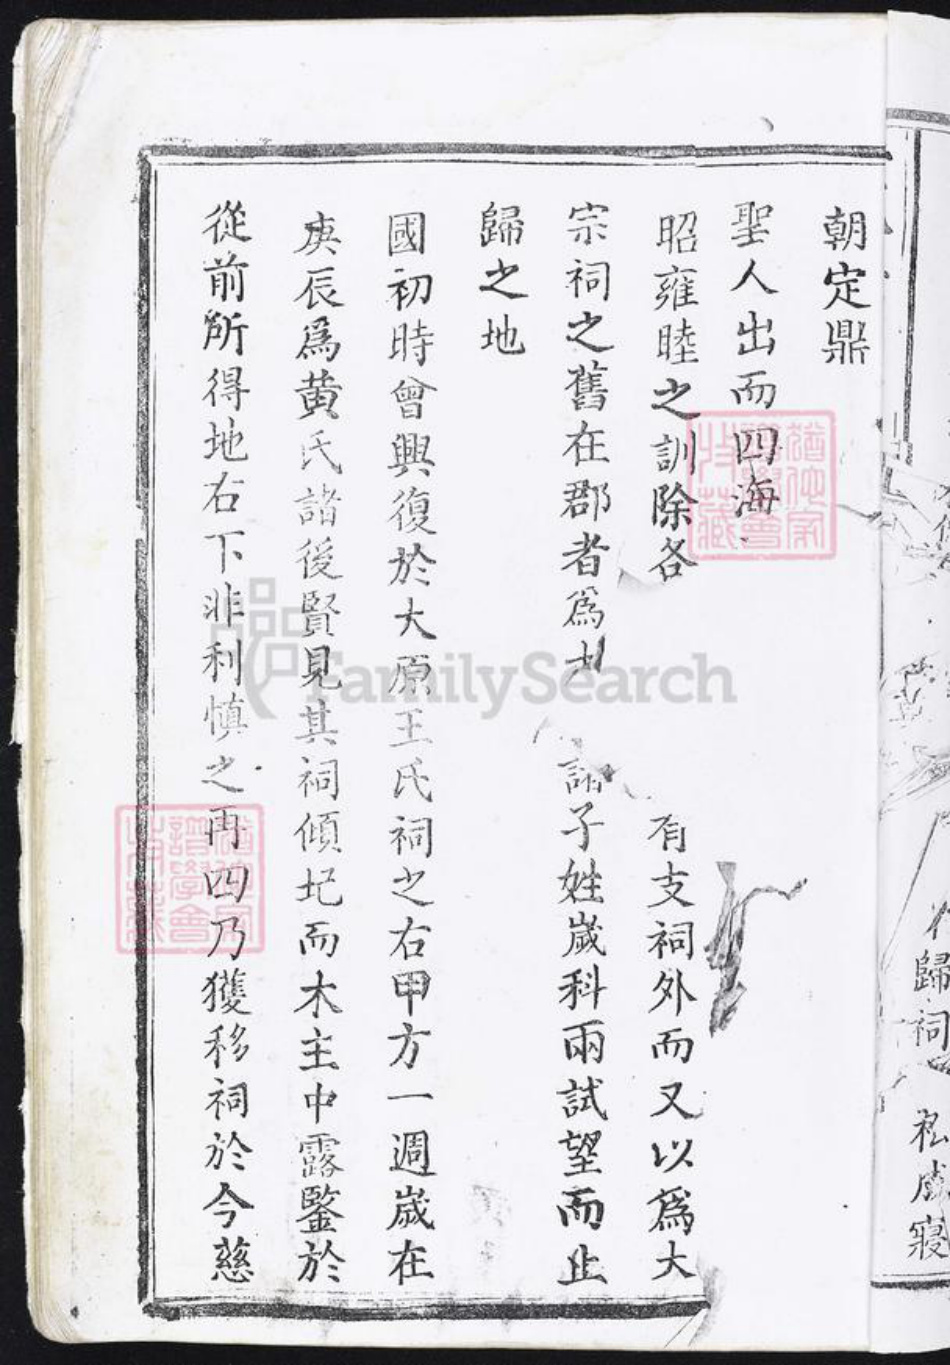 朝定鼎
聖人出而四海
昭雍睦之訓除各 有支祠外而又以爲大
宗祠之舊在郡者爲 諸子姓歲科兩試望而止
歸之地
國初時會興復於大原王氏祠之右甲方一週歲在
庚辰爲黃氏諸後賢見其祠傾圮而木主中露鑒於
從前所得地右下非利慎之再四乃獲移祠於今慈
歸祠
寢
FamilySearch
譜學會
特藏
譜學會
特藏